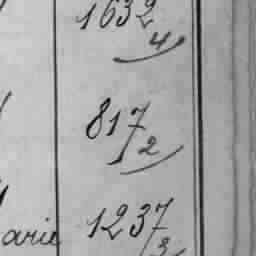 1632/4
817/2
arie 1237/3